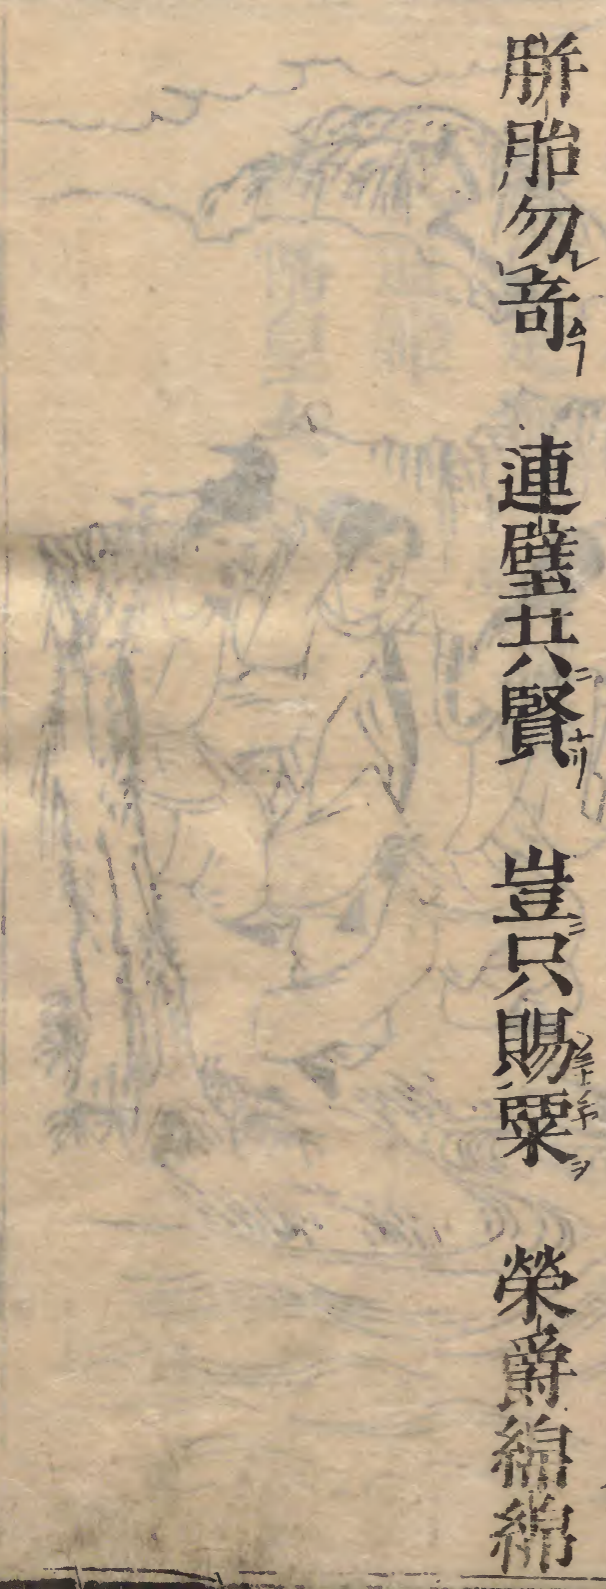 胼胎勿竒 連璧共賢 豈只賜粟 榮爵綿綿